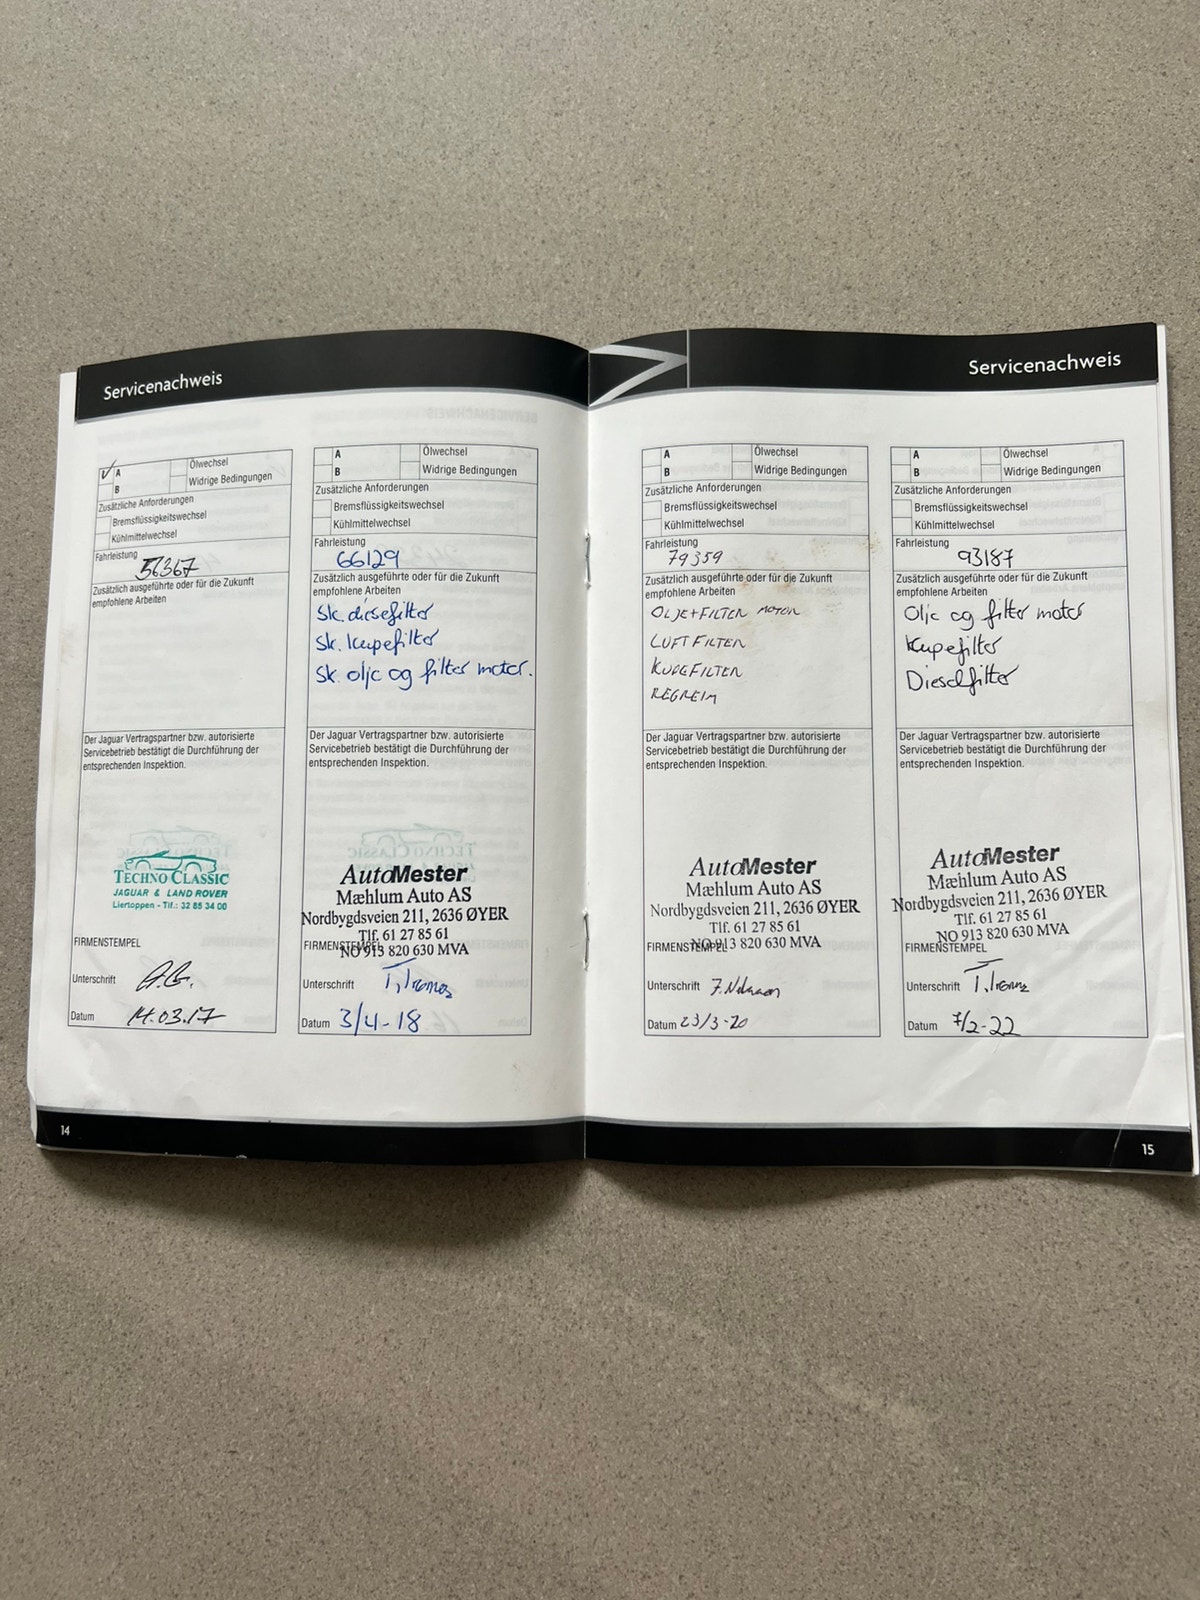 Servicenachweis
A
B
Ölwechsel
Widrige Bedingungen
Zusätzliche Anforderungen
Bremsflüssigkeitswechsel
Kühlmittelwechsel
Fahrleistung
56367
Zusätzlich ausgeführte oder für die Zukunft
empfohlene Arbeiten
Der Jaguar Vertragspartner bzw. autorisierte
Servicebetrieb bestätigt die Durchführung der
entsprechenden Inspektion.
TECHNO CLASSIC
JAGUAR & LAND ROVER
Liertoppen - Tlf.: 32 85 34 00
FIRMENSTEMPEL
Unterschrift
Datum 14.03.17
14
A
B
Ölwechsel
Widrige Bedingungen
Zusätzliche Anforderungen
Bremsflüssigkeitswechsel
Kühlmittelwechsel
Fahrleistung
66129
Zusätzlich ausgeführte oder für die Zukunft
empfohlene Arbeiten
Sk. diesefilter
Sk. kupefilter
Sk. olje og filter motor.
Der Jaguar Vertragspartner bzw. autorisierte
Servicebetrieb bestätigt die Durchführung der
entsprechenden Inspektion.
AutoMester
Mæhlum Auto AS
Nordbygdsveien 211, 2636 ØYER
Tlf. 61 27 85 61
FIRMENSTEMPEL
NO 913 820 630 MVA
Unterschrift
Datum 3/4-18
Servicenachweis
A
B
Ölwechsel
Widrige Bedingungen
Zusätzliche Anforderungen
Bremsflüssigkeitswechsel
Kühlmittelwechsel
Fahrleistung
79359
Zusätzlich ausgeführte oder für die Zukunft
empfohlene Arbeiten
OLJE+FILTER MOTOR
LUFTFILTER
KUPEFILTER
REGREIM
Der Jaguar Vertragspartner bzw. autorisierte
Servicebetrieb bestätigt die Durchführung der
entsprechenden Inspektion.
AutoMester
Mæhlum Auto AS
Nordbygdsveien 211, 2636 ØYER
Tlf. 61 27 85 61
FIRMENSTEMPEL
NO 913 820 630 MVA
Unterschrift
Datum 23/3-20
A
B
Ölwechsel
Widrige Bedingungen
Zusätzliche Anforderungen
Bremsflüssigkeitswechsel
Kühlmittelwechsel
Fahrleistung
93187
Zusätzlich ausgeführte oder für die Zukunft
empfohlene Arbeiten
Olje og filter motor
Kupefilter
Dieselfilter
Der Jaguar Vertragspartner bzw. autorisierte
Servicebetrieb bestätigt die Durchführung der
entsprechenden Inspektion.
AutoMester
Mæhlum Auto AS
Nordbygdsveien 211, 2636 ØYER
Tlf. 61 27 85 61
NO 913 820 630 MVA
FIRMENSTEMPEL
Unterschrift
Datum 7/2-22
15